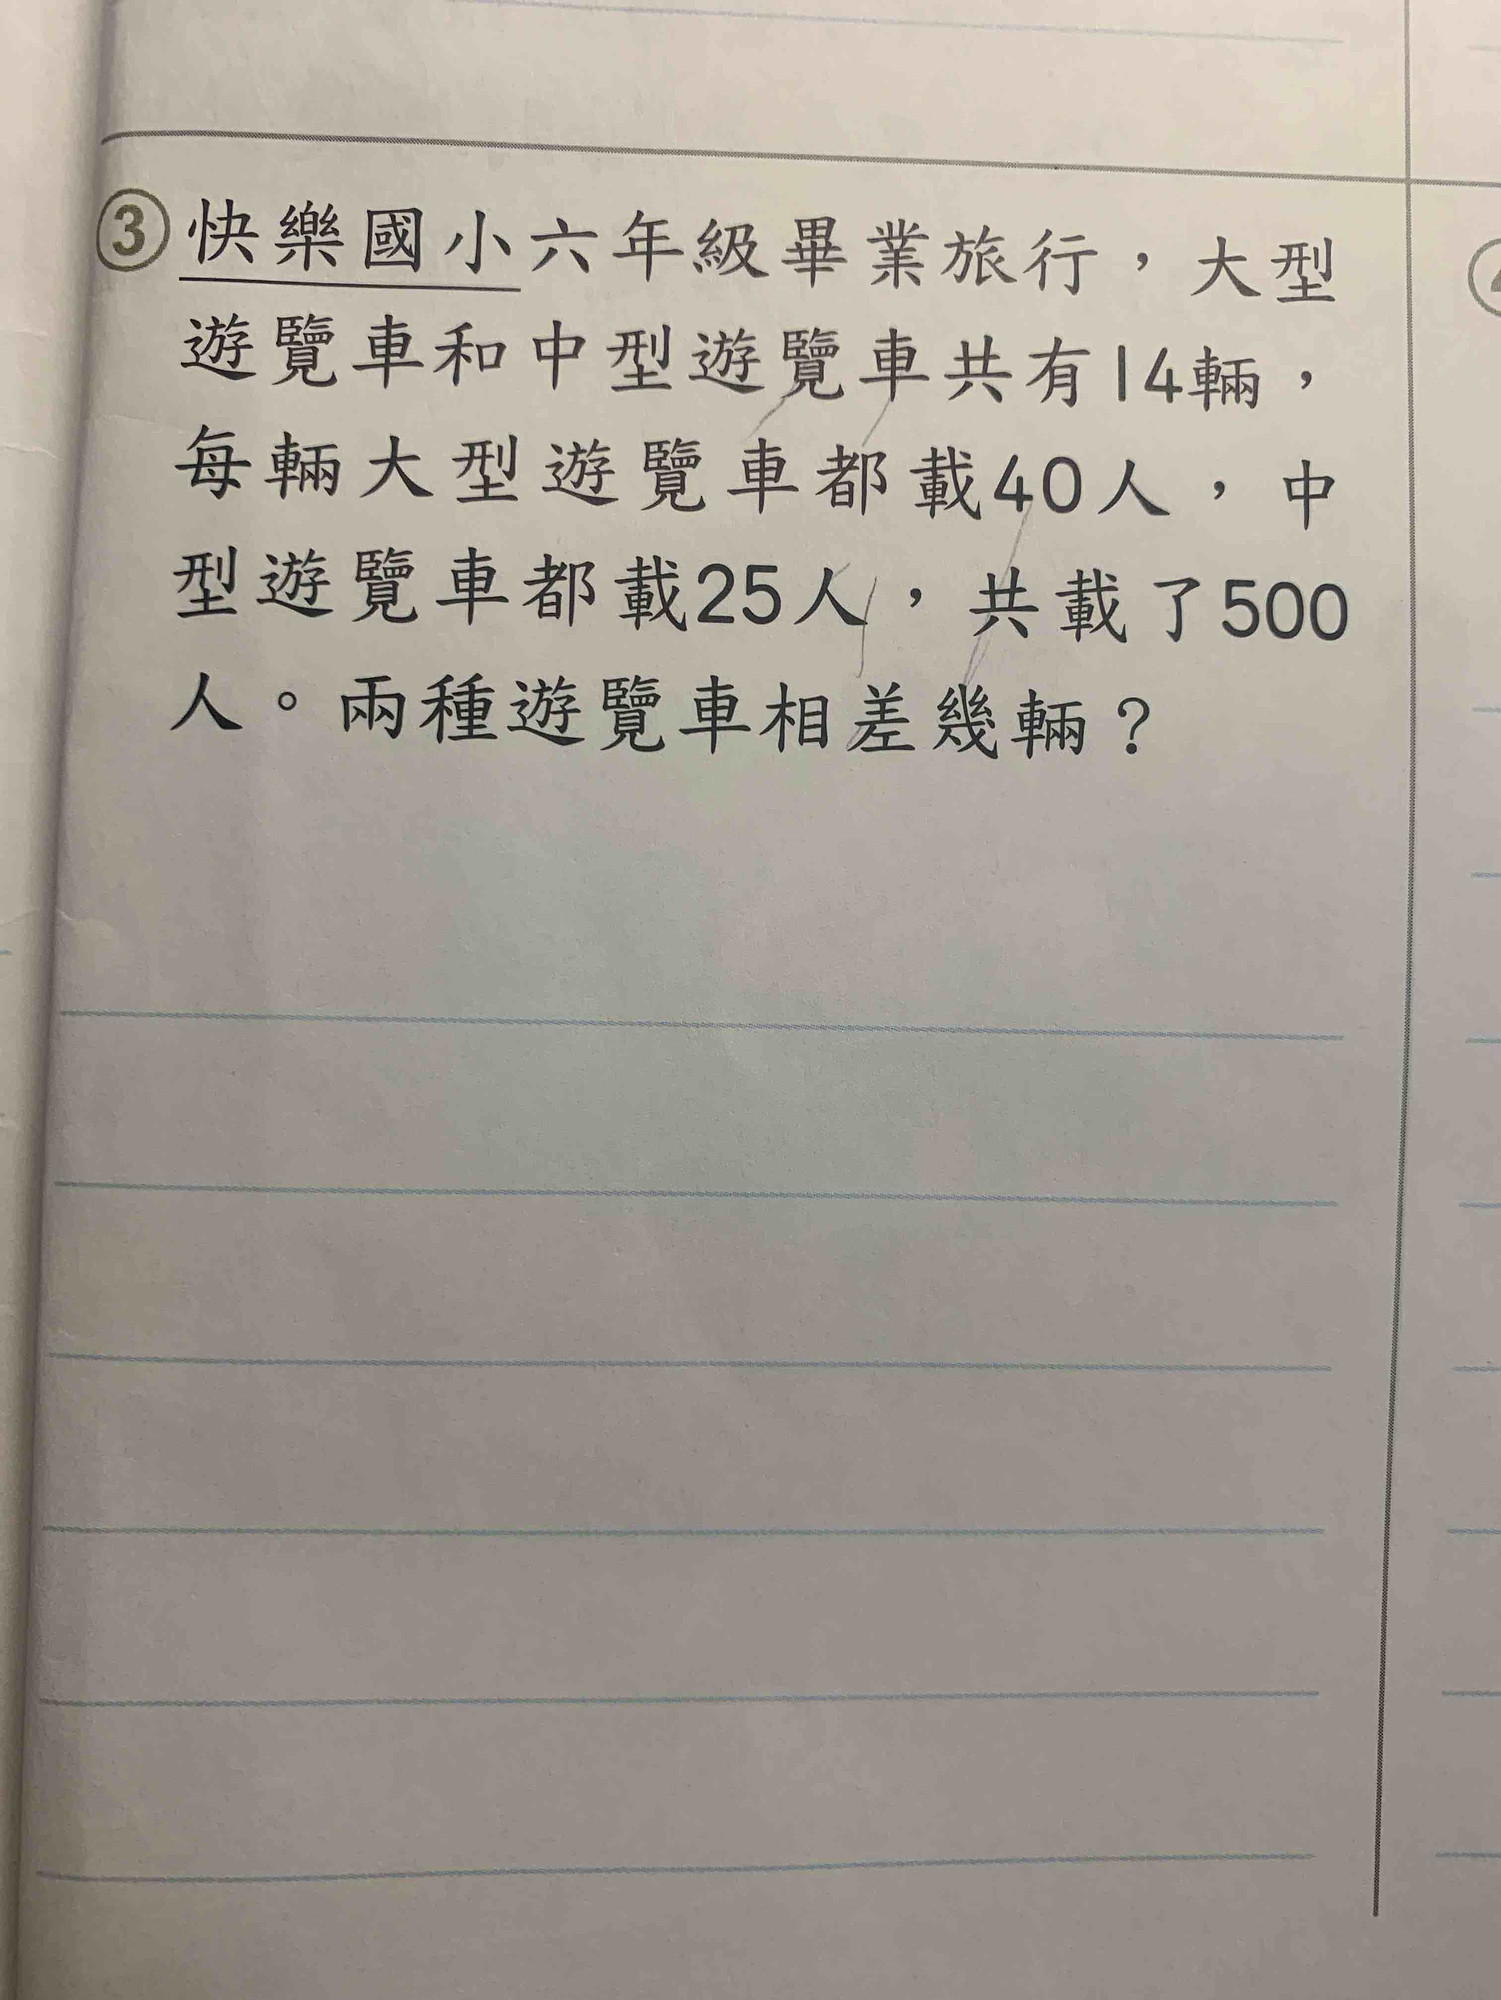 ③快樂國小六年級畢業旅行，大型
遊覽車和中型遊覽車共有14輛，
每輛大型遊覽車都載40人，中
型遊覽車都載25人，共載了500
人。兩種遊覽車相差幾輛？